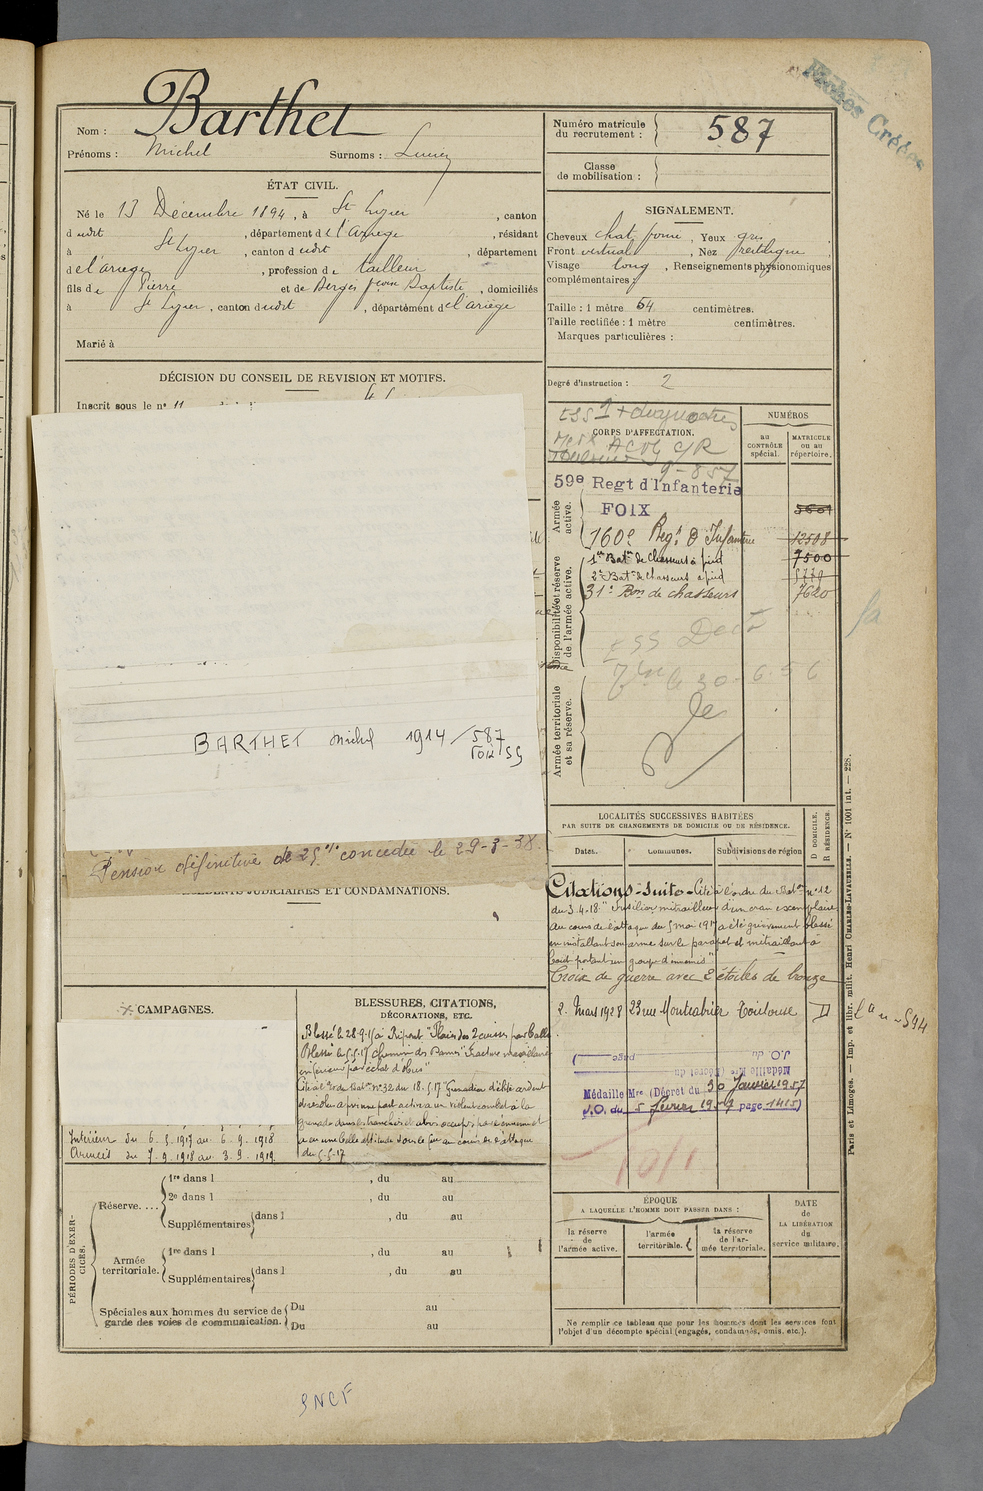 Fiches Créées
Nom : Barthet
Prénoms : Michel Surnoms :
ÉTAT CIVIL.
Né le 13 Décembre 1894, à St Lizier, canton
dudit, département de l'Ariège, résidant
à St Lizier, canton dudit, département
de l'ariège, profession de tailleur
fils de Pierre et de Berges Jean Baptiste, domiciliés
à St Lizier, canton dudit, département de l'ariège
Marié à
DÉCISION DU CONSEIL DE REVISION ET MOTIFS.
Inscrit sous le n° 11
BARTHET Michel 1914/587
FOIX
Pension définitive de 25% concédée le 29-3-38.
JUDICIAIRES ET CONDAMNATIONS.
CAMPAGNES.
Intérieur du 6.5.1917 au 6.9.1918
Armées du 7.9.1918 au 3.9.1919
BLESSURES, CITATIONS,
DÉCORATIONS, ETC.
Blessé le 28.9.15 à Ripont "Plaies des 2 cuisses par balle
Blessé le 5.5.17 Chemin des Dames "Fracture maxillaire
inférieur par éclat d'obus"
Cité à l'ordre du Baton N° 32 du 18.5.17 "Grenadier d'élite ardent
et résolu a pris une part active à un violent combat à la
grenade dans les tranchées et abris occupés par l'ennemi et
a eu une belle attitude sous le feu au cours de l'attaque
du 5.5.17
PÉRIODES D'EXERCICES.
Réserve....
1re dans l , du au
2e dans l , du au
Supplémentaires dans l , du au
Armée territoriale.
1re dans l , du au
Supplémentaires dans l , du au
Spéciales aux hommes du service de garde des voies de communication.
Du au
Du au
SNCF
Numéro matricule du recrutement : 587
Classe de mobilisation :
SIGNALEMENT.
Cheveux chat. foncé, Yeux gris
Front vertical, Nez rectiligne
Visage long, Renseignements physionomiques
complémentaires :
Taille : 1 mètre 64 centimètres.
Taille rectifiée : 1 mètre centimètres.
Marques particulières :
Degré d'instruction : 2
CORPS D'AFFECTATION.
NUMÉROS
au CONTRÔLE spécial.
MATRICULE ou au répertoire.
Armée active.
59e Regt d'Infanterie
FOIX
160e Regt d'Infanterie 12508
1er Baton de Chasseurs à pied 7500
2e Baton de Chasseurs à pied
31e Bon de chasseurs 7620
Disponibilité et réserve de l'armée active.
30-6-56
Armée territoriale et sa réserve.
LOCALITÉS SUCCESSIVES HABITÉES
PAR SUITE DE CHANGEMENTS DE DOMICILE OU DE RÉSIDENCE.
D DOMICILE. R RÉSIDENCE.
Dates. Communes. Subdivisions de région
Citations - Suite - Cité à l'ordre du Baton n° 12
du 3.4.18. "Fusilier mitrailleur d'un cran exemplaire
au cours de l'attaque du 5 mai 1917 a été grièvement blessé
en installant son arme sur le parapet et mitraillant à
bout portant un groupe d'ennemis"
Croix de guerre avec 2 étoiles de bronze
2. Mars 1928 23 rue Montcabrier Toulouse D
Médaille Mre (Décret du 30 Janvier 1957
J.O. du 5 février 1957 page 1415)
ÉPOQUE
A LAQUELLE L'HOMME DOIT PASSER DANS :
la réserve de l'armée active.
l'armée territoriale.
la réserve de l'armée territoriale.
DATE de LA LIBÉRATION du service militaire.
Ne remplir ce tableau que pour les hommes dont les services font
l'objet d'un décompte spécial (engagés, condamnés, omis, etc.).
Paris et Limoges. — Imp. et libr. milit. Henri CHARLES-LAVAUZELLE. — N° 1001 int. — 228.